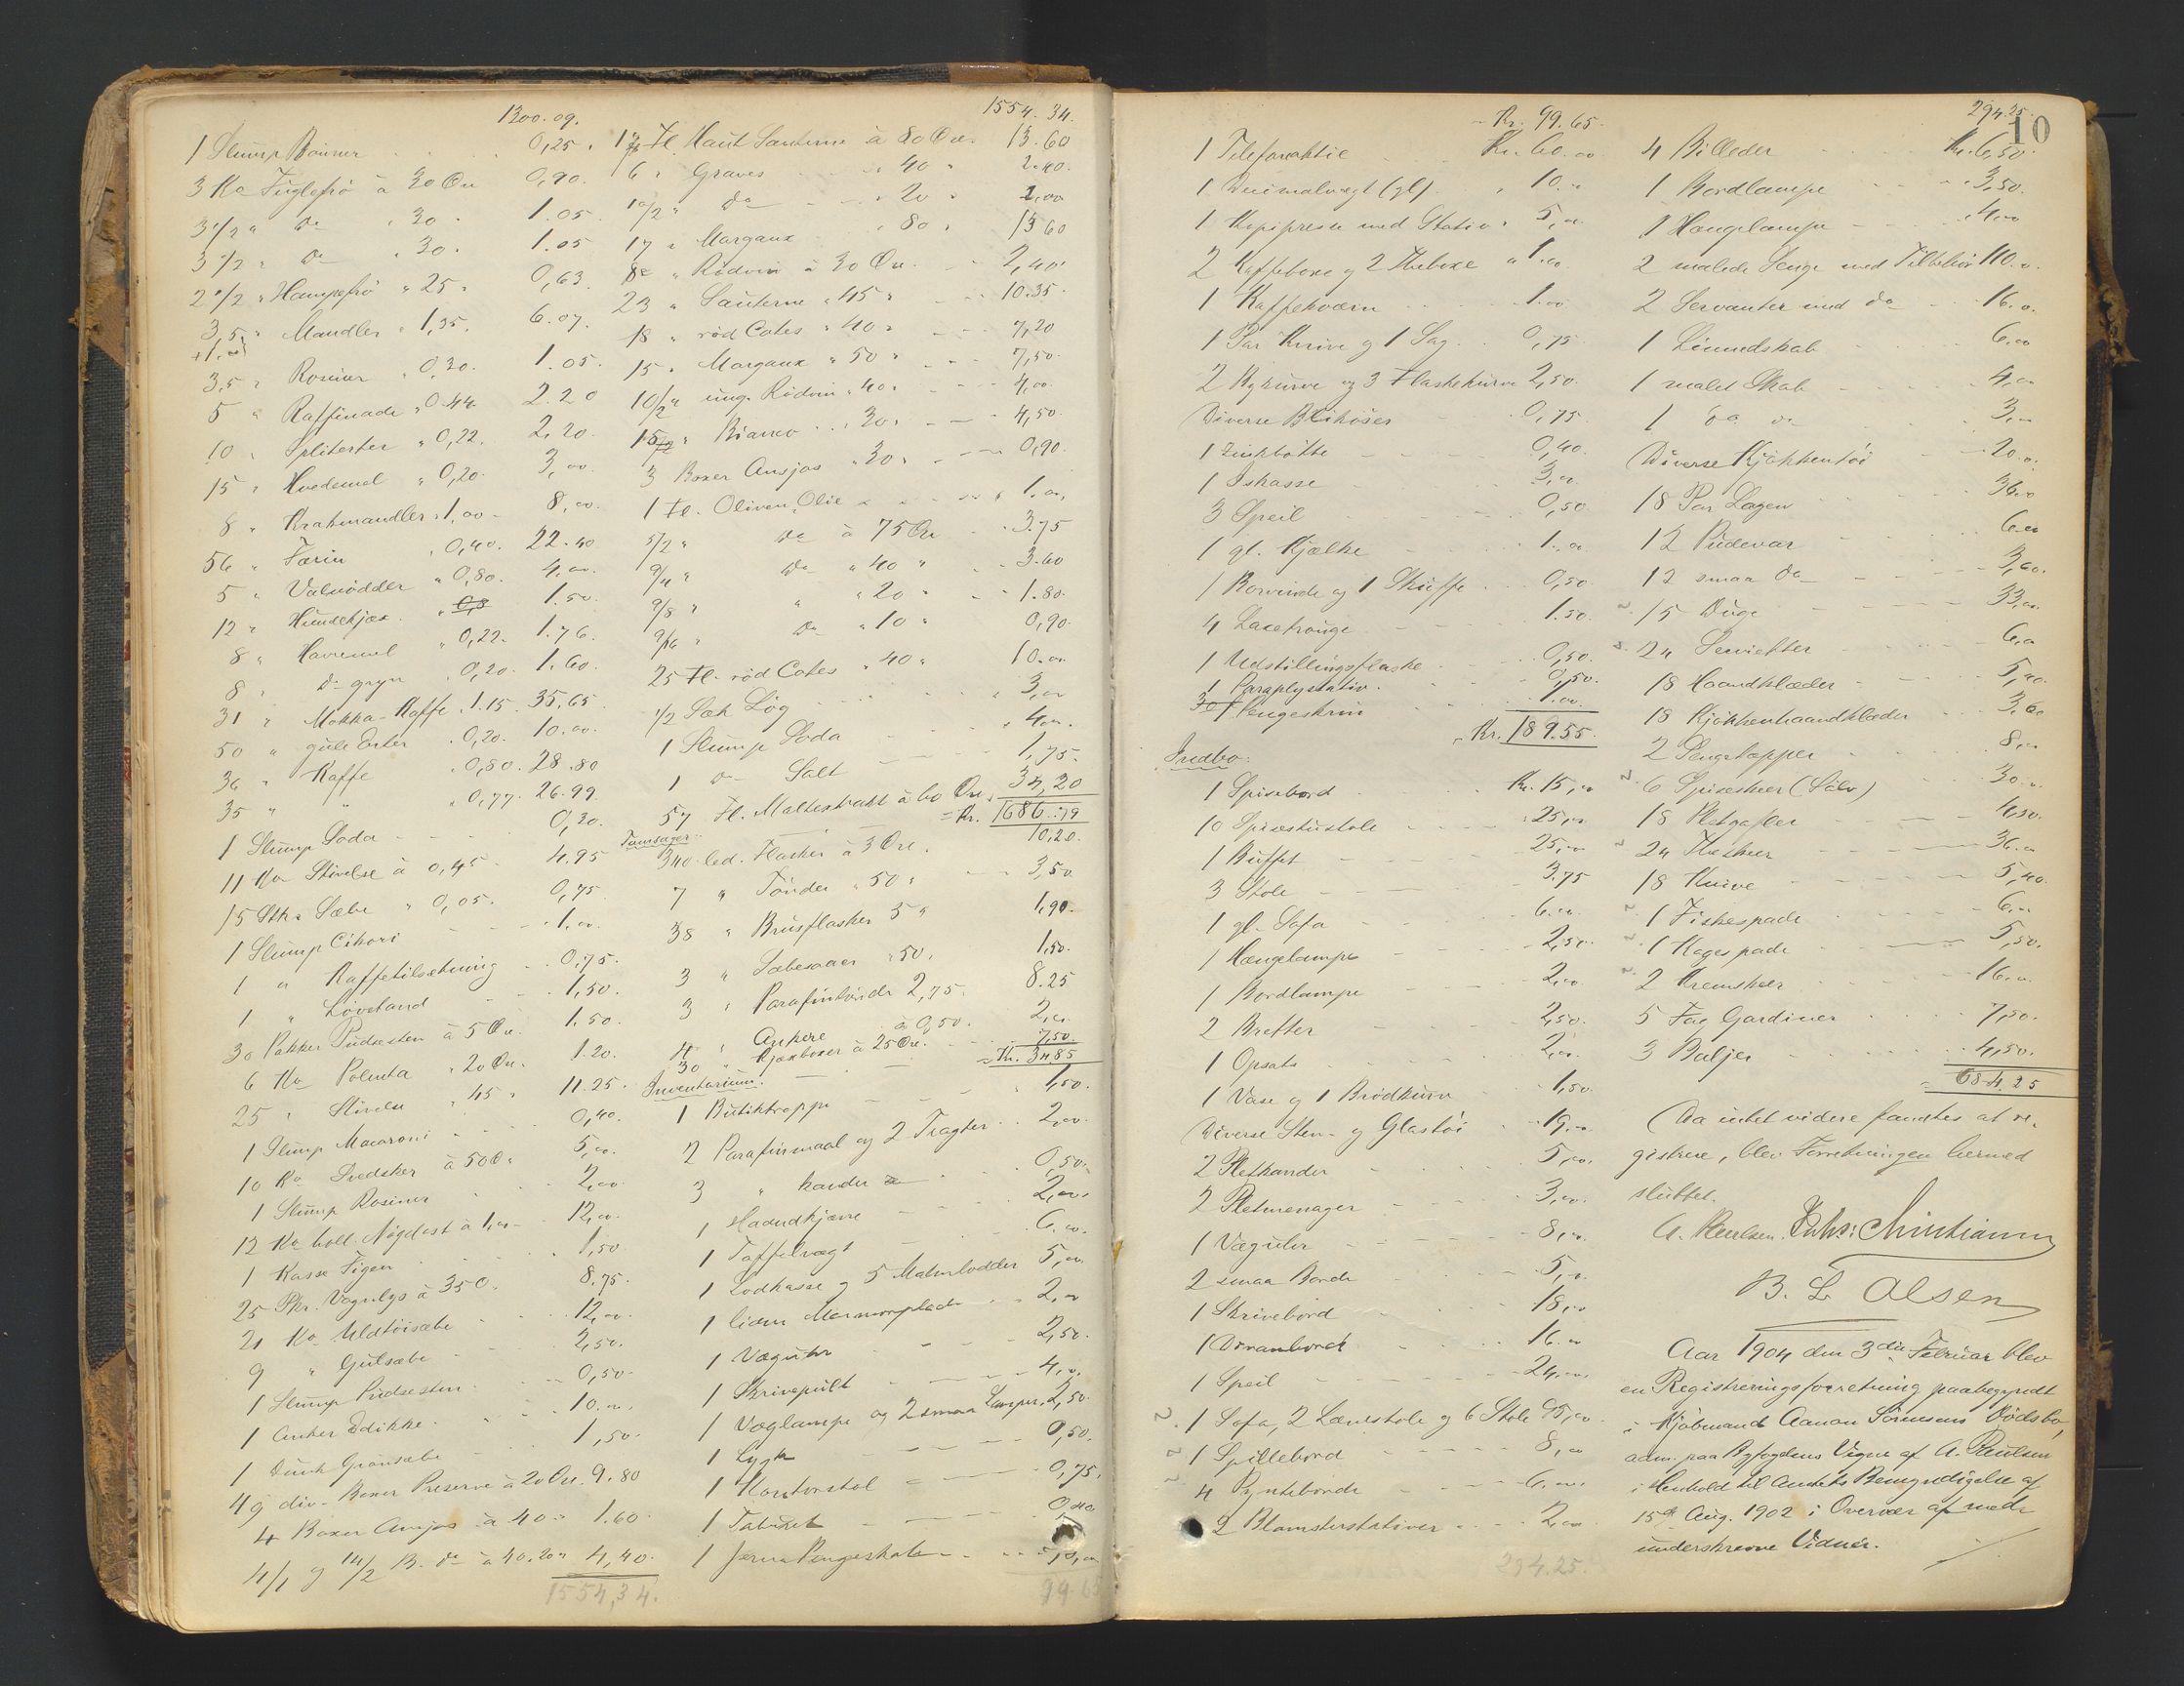 1300.09.
1 Slump Bønner 0,25
3 Ko Fuglefrø à 30 Øre 0,90.
3 1/2 " Do " 30 " 1.05
3 1/2 " Do " 30 " 1.05
2 1/2 " Hampefrø " 25 " 0,63
3,5 " Mandler " 1,35. 6.07.
+1.
3,5 " Rosiner " 0,30. 1.05.
5 " Raffinade " 0.44 2.20
10 " Spliterter " 0,22. 2.20.
15 " Hvedemel " 0,20. 3,00.
8 " Krakmandler " 1,00 8,00.
56 " Farin " 0,40. 22.40
5 " Valnødder " 0,80. 4,00.
12 " Hundekjæx 1.50.
8 " Havremel " 0,22. 1.76.
8 " Do gryn " 0,20. 1.60.
31 " Mokka-Kaffe " 1.15. 35.65.
50 " gule Erter " 0,20. 10.00.
36 " Kaffe " 0,80. 28.80
35 " " " 0,77. 26.99.
1 Slump Soda 0,30.
11 Ko Stivelse à 0,45 4.95
15 Stkr Sæbe " 0,05. 0,75
1 Slump Cikori 1.00.
1 " Kaffetilsetning 0,75.
1 " Løveland 1,50.
30 Pakker Pudsesten à 5 Øre. 1.50.
6 Ko Polenta " 20 Øre. 1.20.
25 " Stivelse " 45 " 11.25.
1 Slump Macaroni 0,40.
10 Ko Svedsker à 50 Ø. 5,00.
1 Slump Rosiner 2,00.
12 Ko holl. Nøgelost à 1,00 12,00.
1 Kasse Figen 1,50
25 Pkr. Vognlys à 35 O. 8.75.
21 Ko Uldtøisæbe 12,00.
9 " Gulsæbe 2,50.
1 Slump Pudsesten 0,50.
1 Anker Edikke 10.00.
1 Dunk Grønsæbe 1,50.
49 div. Boxer Preserve à 20 Øre. 9.80
4 Boxer Ansjos à 40 " 1.60.
4/1 og 14/2 B. do à 40.20 " 4,40.
1554,34.
1554.34.
Fl. Haut Sauterne à 80 Øre 13.60
6 " Graves " 40 " 2.40.
10/2 " Do " 20 " 2,00
17 " Margaux " 80 " 13 60
8 " Rødvin à 30 Øre 2,40.
23 " Sauterne " 45 " 10.35.
18 " rød Cotes " 40 " 7,20
15 " Margaux " 50 " 7,50.
10/2 " ung. Rødvin " 40 " 4,00.
15 " Bianco " 30 " 4,50.
3 Boxer Ansjos " 30 " 0,90.
1 Fl. Oliven Olie 1.00.
5/2 " Do à 75 Øre 3.75
9/4 " Do " 40 " 3.60
9/8 " " " 20 " 1.80.
9/16 " Do " 10 " 0,90.
25 Fl. rød Cotes " 40 " 10.00
1/2 Sæk Løg 3,00
1 Slump Soda 4,00.
1 Do Salt 1,75.
57 Fl. Maltextrakt à 60 Øre. 34,20
Kr. 1686.79
Tomsager:
340 led. Flasker à 3 Øre. 10.20.
7 " Tønder " 50 " 3,50
38 " Brusflasker 5 " 1,90.
3 " Sæbesaaer " 50 " 1.50.
3 " Parafintønde 2,75. 8.25
4 " Ankere à 0,50. 2,00.
30 " Kjæxboxer à 25 Øre. 7,50.
Kr. 34 85
Inventarium.
1 Butiktrappe 1,50.
2 Parafinmaal og 2 Tragter 2,00.
3 " kander 0,50.
1 Haandkjærre 2,00.
1 Taffelvægt 6,00.
1 Lodkasse og 5 Malmlodder 5,00.
1 liden Marmorplade 2,00
1 Væguhr 2,50.
1 Skrivepult 4,00.
1 Væglampe og 2 smaa Lamper. 2,50.
1 Lygte 0,50.
1 Kontorstol 0,75.
1 Taburet 0,40
1 Jern Pengeskab
99.65
Kr. 99.65.
1 Telefonaktie Kr. 60.00
1 Decimalvægt (gl) " 10.00
1 Kopipresse med Stativ " 5,00
2 Kaffeboxe og 2 Theboxe " 1.00
1 Kaffekværn 1.00
1 Par Knive og 1 Sag 0,75.
2 Rykurve og 3 Flaskekurve 2,50.
Diverse Blikøser 0,75
1 Zinkbøtte 0,40.
1 Iskasse 3,00.
3 Speil 0,50
1 gl. Kjælke 1.00
1 Borvinde og 1 Skuffe 0,50.
4 Laxetrauge 1.50.
1 Udstillingsflaske 0,50.
1 Paraplystativ 0,50.
1 Pengeskrin 1.00.
Kr. 189.55.
Indbo:
1 Spisebord Kr. 15,00
10 Spisestustole 25,00
1 Buffet 25,00
3 Stole 3.75
1 gl. Sofa 6.00.
1 Hængelampe 2,50.
1 Bordlampe 2,00
2 Bretter 2,50.
1 Opsats 2,00.
1 Vase og 1 Brødkurv 1,50.
Diverse Sten- og Glastøi 19.00
2 Pletkander 5,00.
2 Pletmenager 3,00.
1 Væguhr 8,00.
2 smaa Borde 5,00.
1 Skrivebord 18,00
1 Divanbord 16.00
1 Speil 24,00.
1 Sofa, 2 Lænestole og 6 Stole 95,00.
1 Spillebord 8,00
4 Pynteborde 6,00.
2 Blomsterstativer 2,00
294.25.
294.25.
10
4 Billeder Kr. 6,50.
1 Bordlampe 3,50.
1 Hængelampe 4,00
2 malede Senge med Tilbehør 110.00
2 Servanter med do 16.00
1 Linnedskab 6,00
1 malet Skab 4,00
1 do do 3,00
Diverse Kjøkkentøi 20.00
18 Par Lagen 36.00
12 Pudevar 6.00
12 smaa Do 3,60.
15 Duge 33,00.
24 Servietter 6,00
18 Haandklæder 5,40.
18 Kjøkkenhaandklæder 3.60
2 Sengetæpper 8,00
6 Spiseskeer (Sølv) 30.00
18 Pletgafler
24 Theskeer 36.00
18 Knive 5,40.
1 Fiskespade 6,00
1 Kagespade 5,50.
2 Kremskeer 16.00
5 Fag Gardiner 7,50.
3 Baljer 4,50.
684.25
Da intet videre fandtes at re-
gistrere, blev Forretningen hermed
sluttet.
A. Paulsen. Johs: Christiansen
B. L Olsen
Aar 1904 den 3die Februar blev
en Registreringsforretning paabegyndt
i Kjøbmand Aanon Sørensens Dødsbo,
adm. paa Byfogdens Vegne af A. Paulsen
i Henhold til Amtets Bemyndigelse af
15de Aug. 1902 i Overvær af med-
underskrevne Vidner.